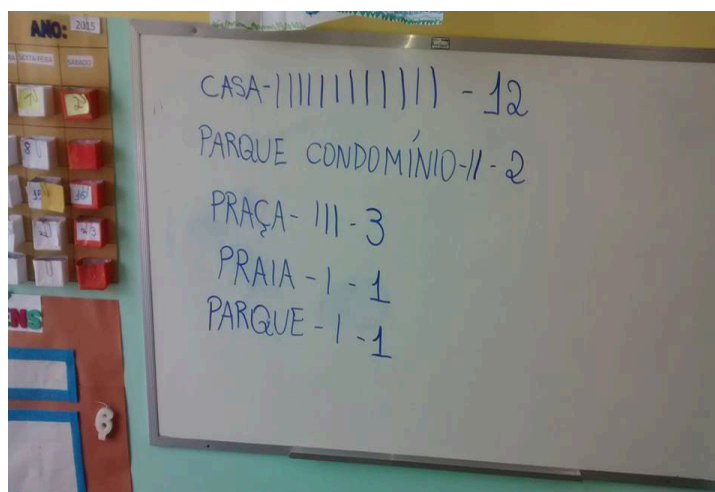 ANO: 2015
SEXTA-FEIRA
SÁBADO
CASA-|||||||||||| - 12
PARQUE CONDOMÍNIO-||- 2
PRAÇA- |||- 3
PRAIA - | - 1
PARQUE - | - 1